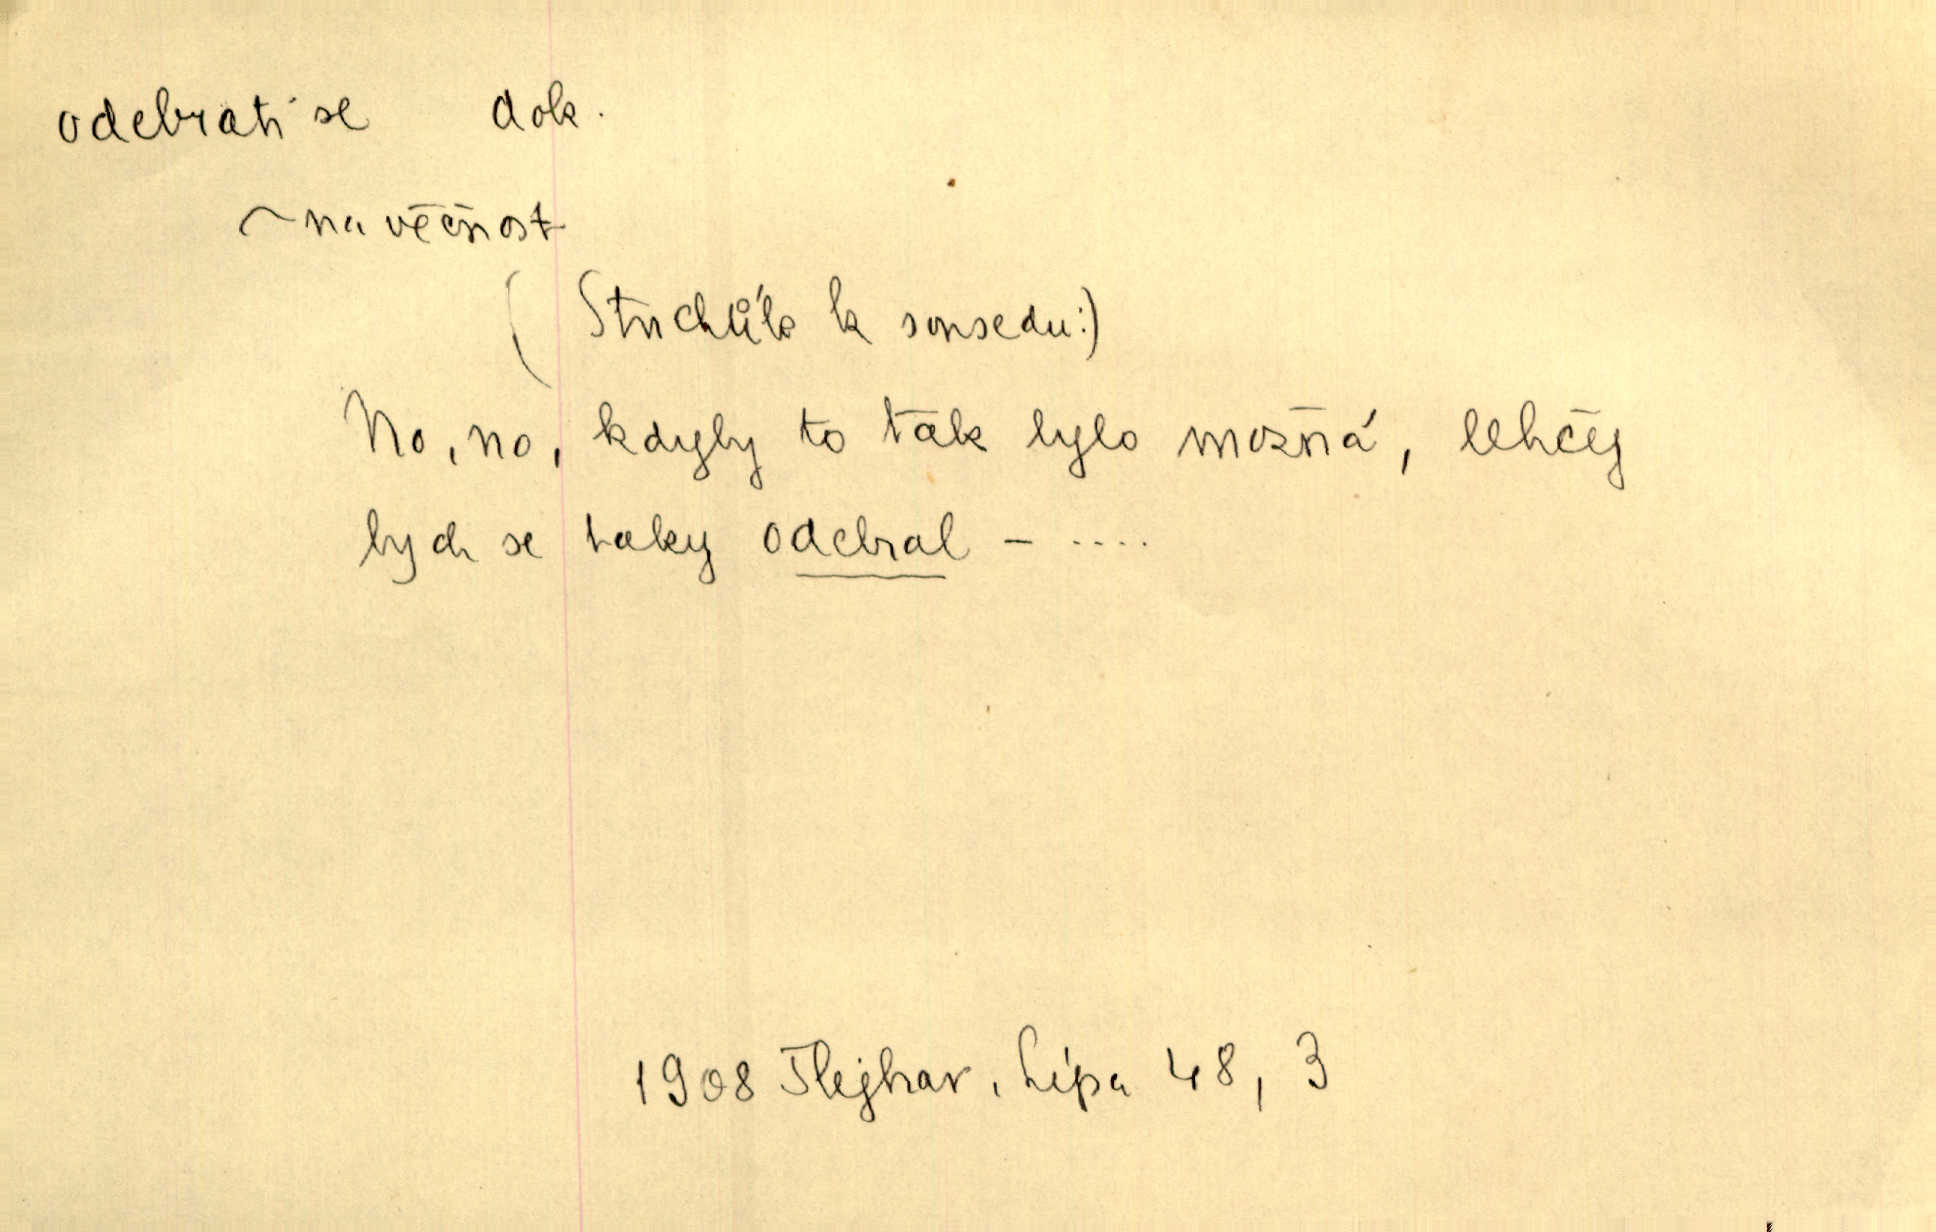 odebrati se dok.
~ na věčnost
( k sousedu:)
No, no, kdyby to tak bylo možná, lehčej
bych se taky odebral - ....
1908 Tlejhar, Lípa 48, 3